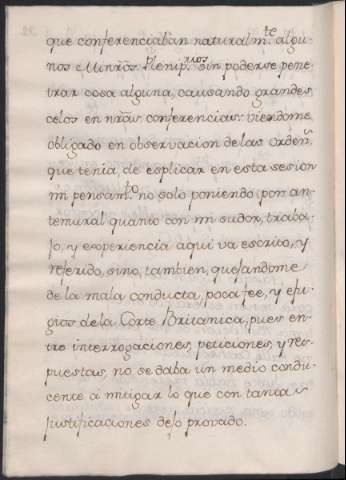 que conferenciaban naturalm.te algu-
nos Minrõs Plenip.rios sin poderse pene
trar cosa alguna, causando grandes
celos en nrãs conferencias: viendome
obligado en observacion de las orden.s
que tenia, de esplicar en esta sesion
mi pensam.to no solo poniendo por an-
temural quanto con mi sudor, traba-
jo, y experiencia aqui va escrito, y
referido, sino, tambien, quejandome
de la mala conducta, poca fee, y
de la Corte Britanica, pues en-
tre interrogaciones, peticiones, y res-
puestas, no se daba un medio condu-
cente á mitigar lo que con tanta
justificaciones de lo provado.